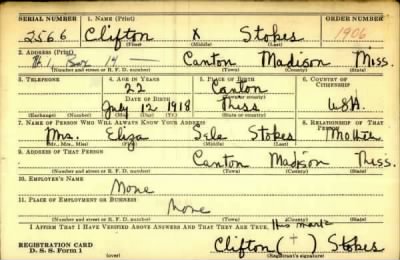 SERIAL NUMBER 1. NAME (Print) ORDER NUMBER
2566 Clifton X Stokes 1906
(First) (Middle) (Last)
2. ADDRESS (Print)
Rt. 1 Box 14 — Canton Madison Miss.
(Number and street or R. F. D. number) (Town) (County) (State)
3. TELEPHONE 4. AGE IN YEARS 5. PLACE OF BIRTH 6. COUNTRY OF CITIZENSHIP
22 Canton
DATE OF BIRTH (Town or county)
July 12 1918 Miss U.S.A.
(Exchange) (Number) (Mo.) (Day) (Yr.) (State or country)
7. NAME OF PERSON WHO WILL ALWAYS KNOW YOUR ADDRESS 8. RELATIONSHIP OF THAT PERSON
Mrs. Eliza Stokes Mother
(Mr., Mrs., Miss) (First) (Middle) (Last)
9. ADDRESS OF THAT PERSON
Canton Madison Miss.
(Number and street or R. F. D. number) (Town) (County) (State)
10. EMPLOYER'S NAME
None
11. PLACE OF EMPLOYMENT OR BUSINESS
None
(Number and street or R. F. D. number) (Town) (County) (State)
I AFFIRM THAT I HAVE VERIFIED ABOVE ANSWERS AND THAT THEY ARE TRUE.
His mark
REGISTRATION CARD Clifton (+) Stokes
D. S. S. Form 1 (over) (Registrant's signature)